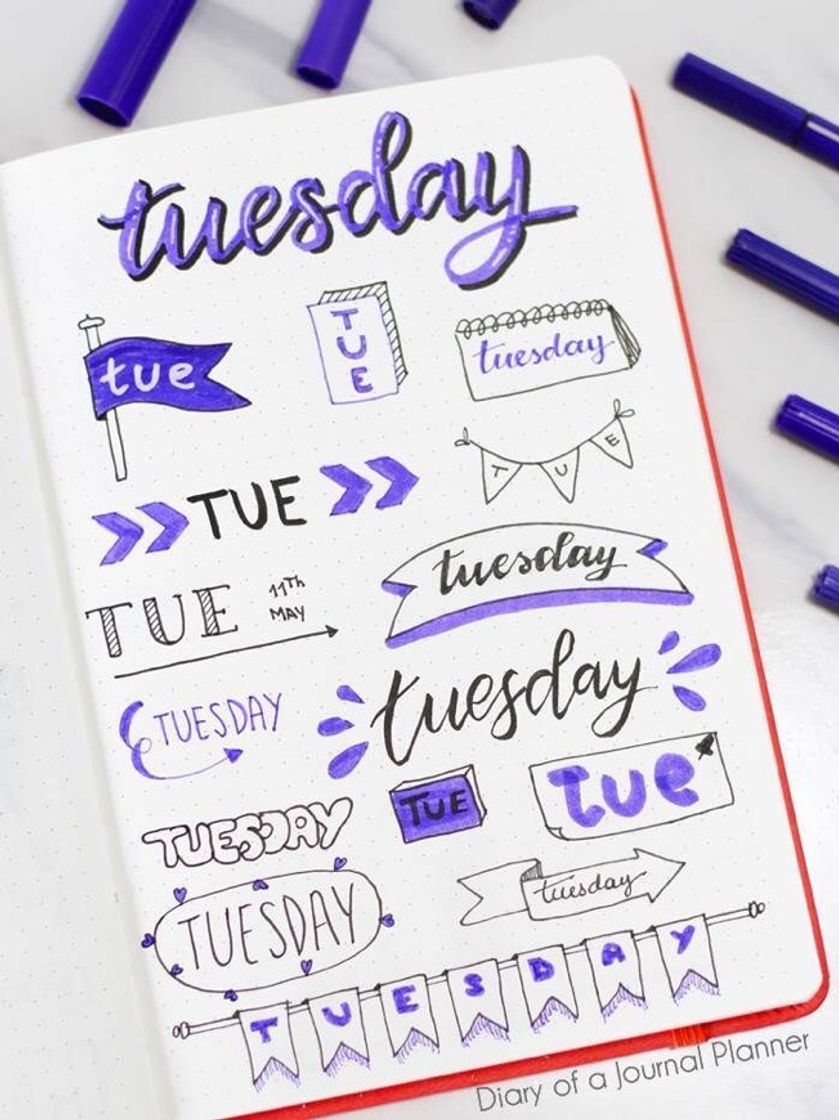 tuesday
tue
TUE
tuesday
TUE
TUE
tuesday
TUE 11Th
MAY
TUESDAY
tuesday
TUESDAY
TUE
Tue
TUESDAY
tuesday
TUESDAY
Diary of a Journal Planner